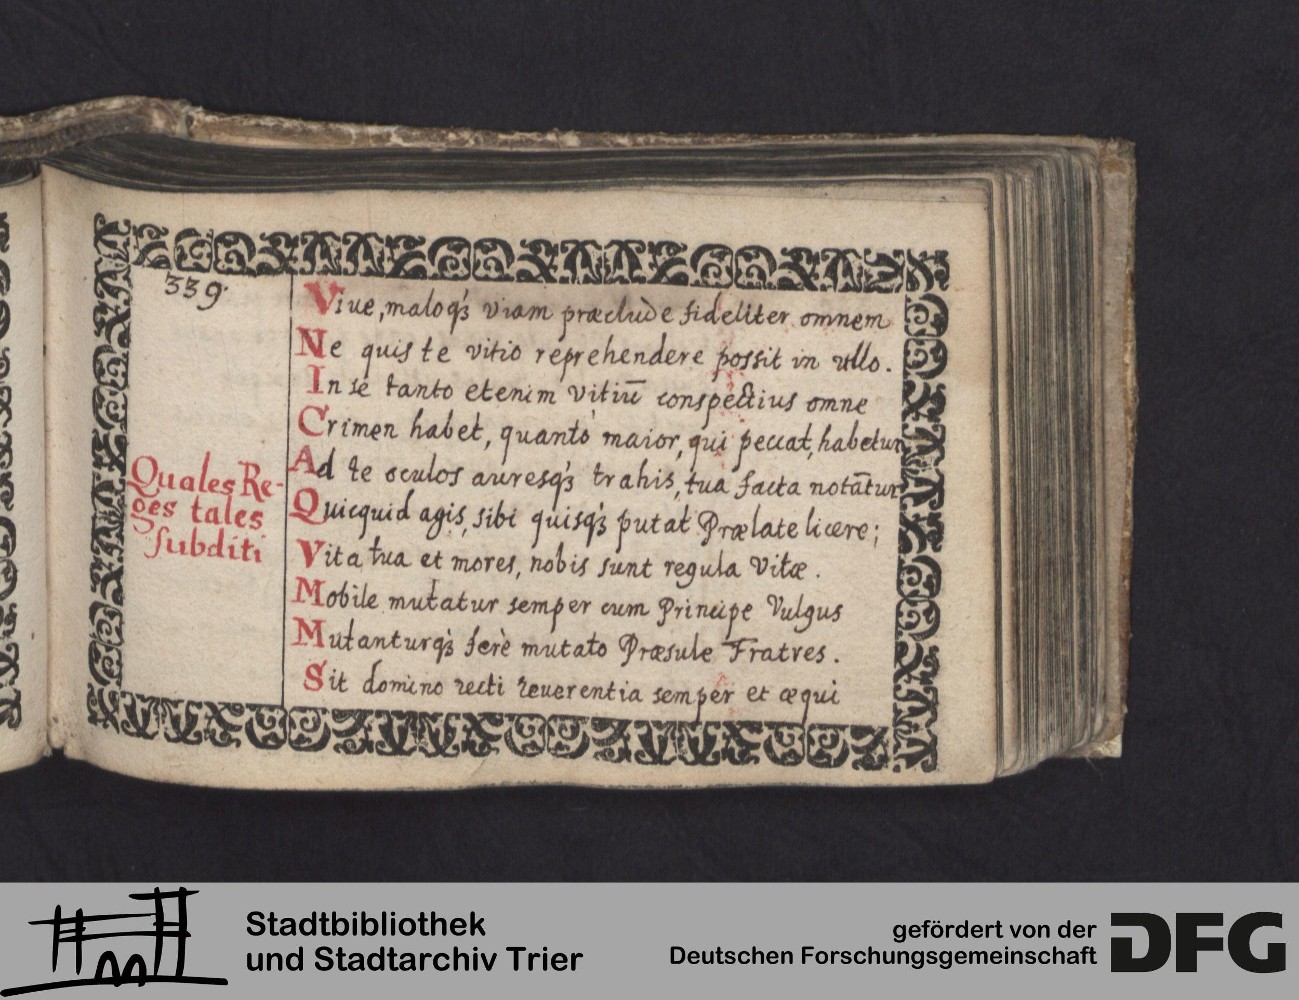 339.
Quales Re-
ges tales
subditi
Viue, maloq́3 viam præclude fideliter omnem
Ne quis te vitio reprehendere possit in ullo.
In se tanto etenim vitiū conspectius omne
Crimen habet, quantò maior, qui peccat, habetur
Ad te oculos auresq́3 trahis, tua facta notātur
Quicquid agis, sibi quisq́3 putat Prælate licere;
Vita tua et mores, nobis sunt regula Vitæ.
Mobile mutatur semper cum Principe Vulgus
Mutanturq́3 ferè mutato Præsule Fratres.
Sit domino recti reuerentia semper et æqui
Stadtbibliothek
und Stadtarchiv Trier
gefördert von der
Deutschen Forschungsgemeinschaft
DFG